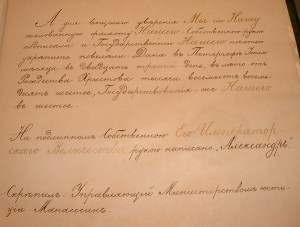 А для вящшаго уверения Мы сию Нашу
жалованную грамоту Нашею Собственною рукою
подписали и Государственною Нашею печатью
укрепить повелели. Дана в Петергофе Июля
месяца в двадцать третий день, в лето от
Рождества Христова тысяча восемьсот восемь-
десят шестое, Государствования же Нашего
в шестое.
На подлинном Собственною Его Император-
скаго Величества рукою написано: „Александръ“.
Скрепил: Управляющий Министерством юсти-
ции Манассеин.